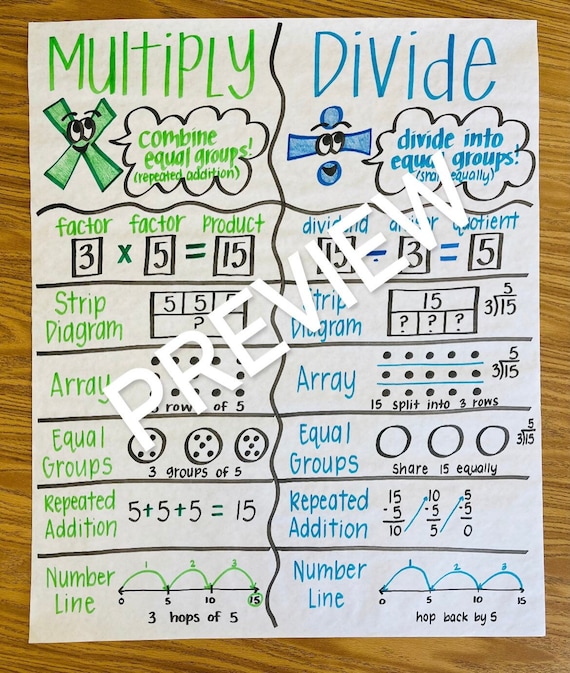 Multiply
combine
equal groups!
(repeated addition)
factor factor product
3 x 5 = 15
Strip
Diagram
5 5 5
?
Array
3 rows of 5
Equal
Groups
3 groups of 5
Repeated
Addition
5+5+5 = 15
Number
Line
1 2 3
0 5 10 15
3 hops of 5
Divide
divide into
equal groups!
(share equally)
dividend divisor quotient
15 ÷ 3 = 5
Strip
Diagram
15
? ? ?
5
3)15
Array
5
3)15
15 split into 3 rows
Equal
Groups
5
3)15
Share 15 equally
Repeated
Addition
15 10 5
-5 -5 -5
10 5 0
Number
Line
1 2 3
0 5 10 15
hop back by 5
PREVIEW